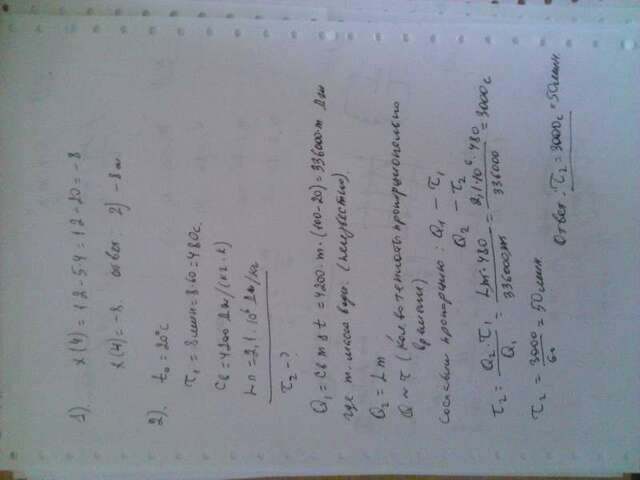 1). x(4) = 12 - 5·4 = 12 - 20 = -8
x(4) = -8. ответ: 2) -8 м.
2). t₀ = 20°C
τ₁ = 8 мин = 8·60 = 480 с.
Cв = 4200 Дж/(кг·К)
Lп = 2,1·10⁶ Дж/кг
τ₂ - ?
Q₁ = Cв m Δt = 4200·m·(100-20) = 336000 m Дж
где m. масса воды. (неизвестно)
Q₂ = Lm
Q ~ τ (кол-во теплоты пропорционально
времени)
Составим пропорцию: Q₁ - τ₁
Q₂ - τ₂
τ₂ = Q₂·τ₁ / Q₁ = Lm·480 / 336000m = 2,1·10⁶·480 / 336000 = 3000 с
τ₂ = 3000 / 60 = 50 мин
Ответ: τ₂ = 3000 с = 50 мин